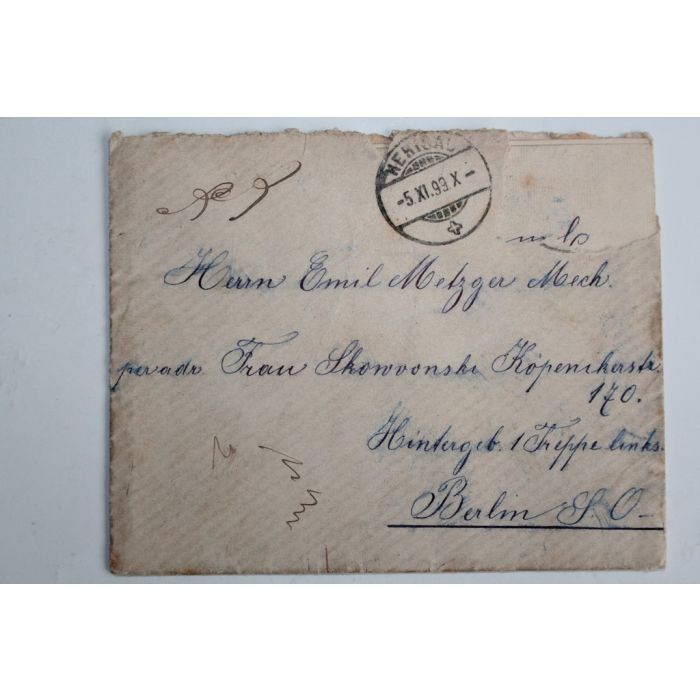 HERISAU
-5.XI.93.X-
Herrn Emil Metzger Mech.
per adr Frau Skowronski Köpenikerstr.
170.
Hintergeb. 1 Treppe links.
Berlin S. O.